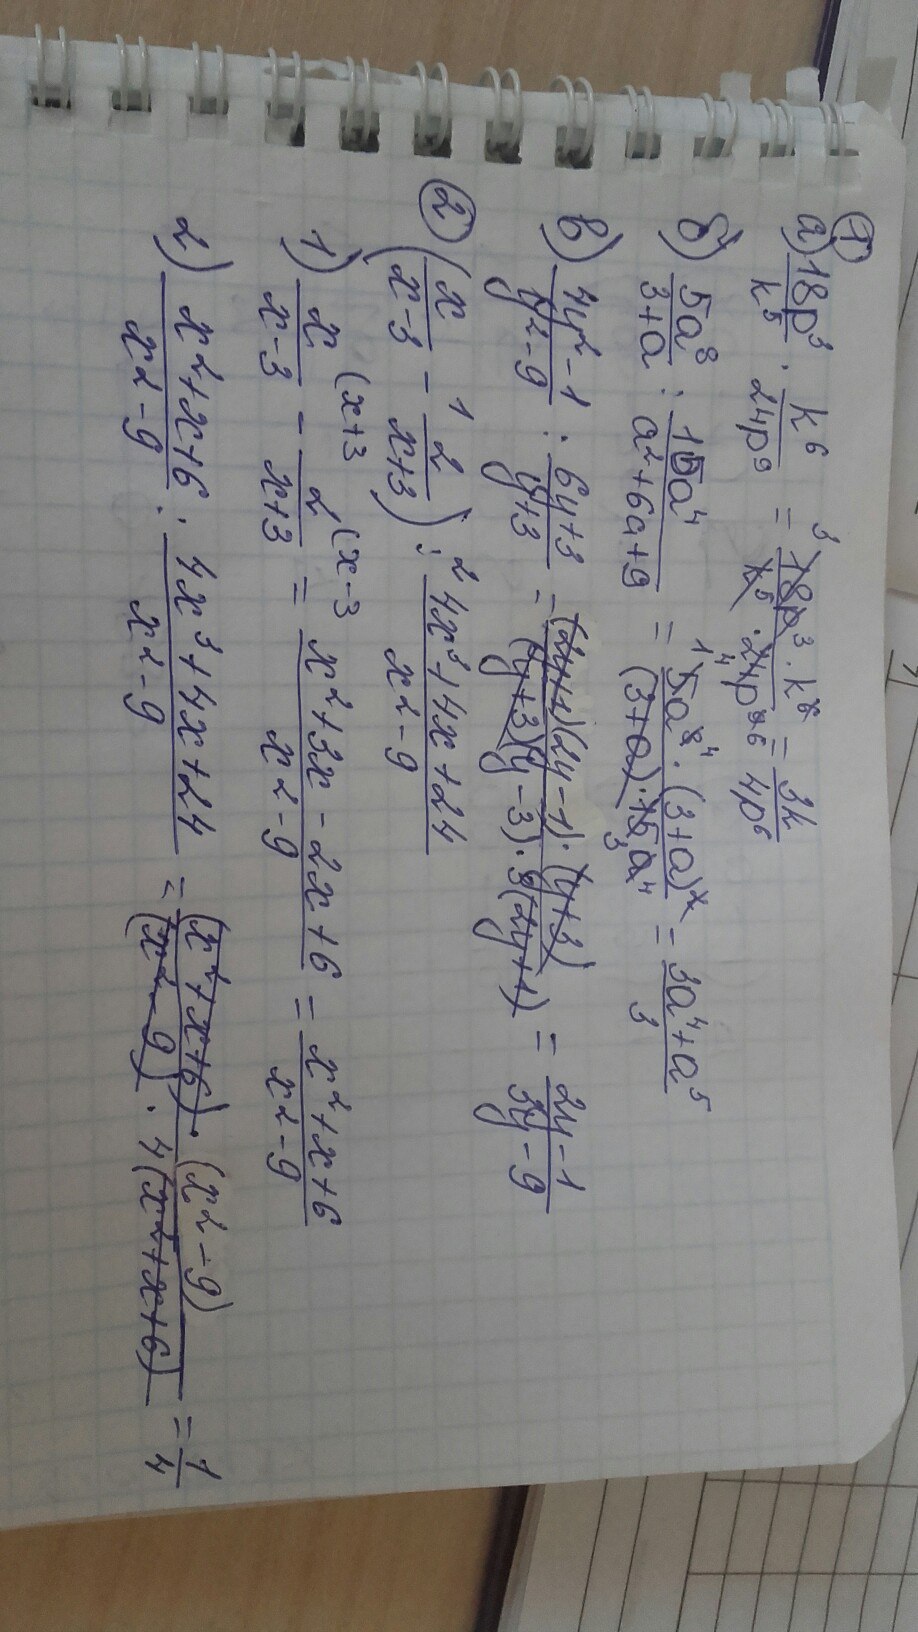 ①
а) 18p³/k⁵ · k⁶/24p⁹ = ³18p³ · k⁶/k⁵ · ₄24p⁹ ⁶ = 3k/4p⁶
б) 5a⁸/3+a : 15a⁴/a²+6a+9 = ¹5a⁸ ⁴ · (3+a)²/(3+a) · 15₃a⁴ = 3a⁴+a⁵/3
в) 4y²-1/y²-9 : 6y+3/y+3 = (2y+1)(2y-1) · (y+3)/(y+3)(y-3) · 3(2y+1) = 2y-1/3y-9
② (x/x-3 -¹ 2/x+3) :² 4x³+4x+24/x²-9
1) x/x-3 (x+3 - 2/x+3 (x-3 = x²+3x-2x+6/x²-9 = x²+x+6/x²-9
2) x²+x+6/x²-9 : 4x³+4x+24/x²-9 = (x²+x+6) · (x²-9)/(x²-9) · 4(x²+x+6) = 1/4